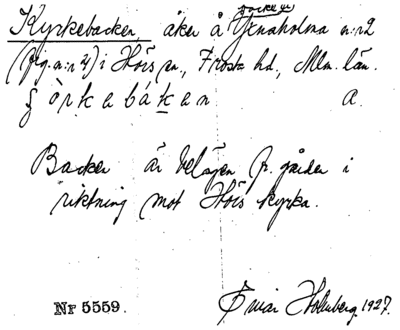 Kyrkebacken, åker å Jenaholma n:r 2
(fig. n:r 4) i Hörs sn, Frosta hd, Mlm. län.
ʒörkebákan a.
Backen är belägen fr. gården i
riktning mot Hörs kyrka.
Nr 5559. Einar Holmberg. 1927.